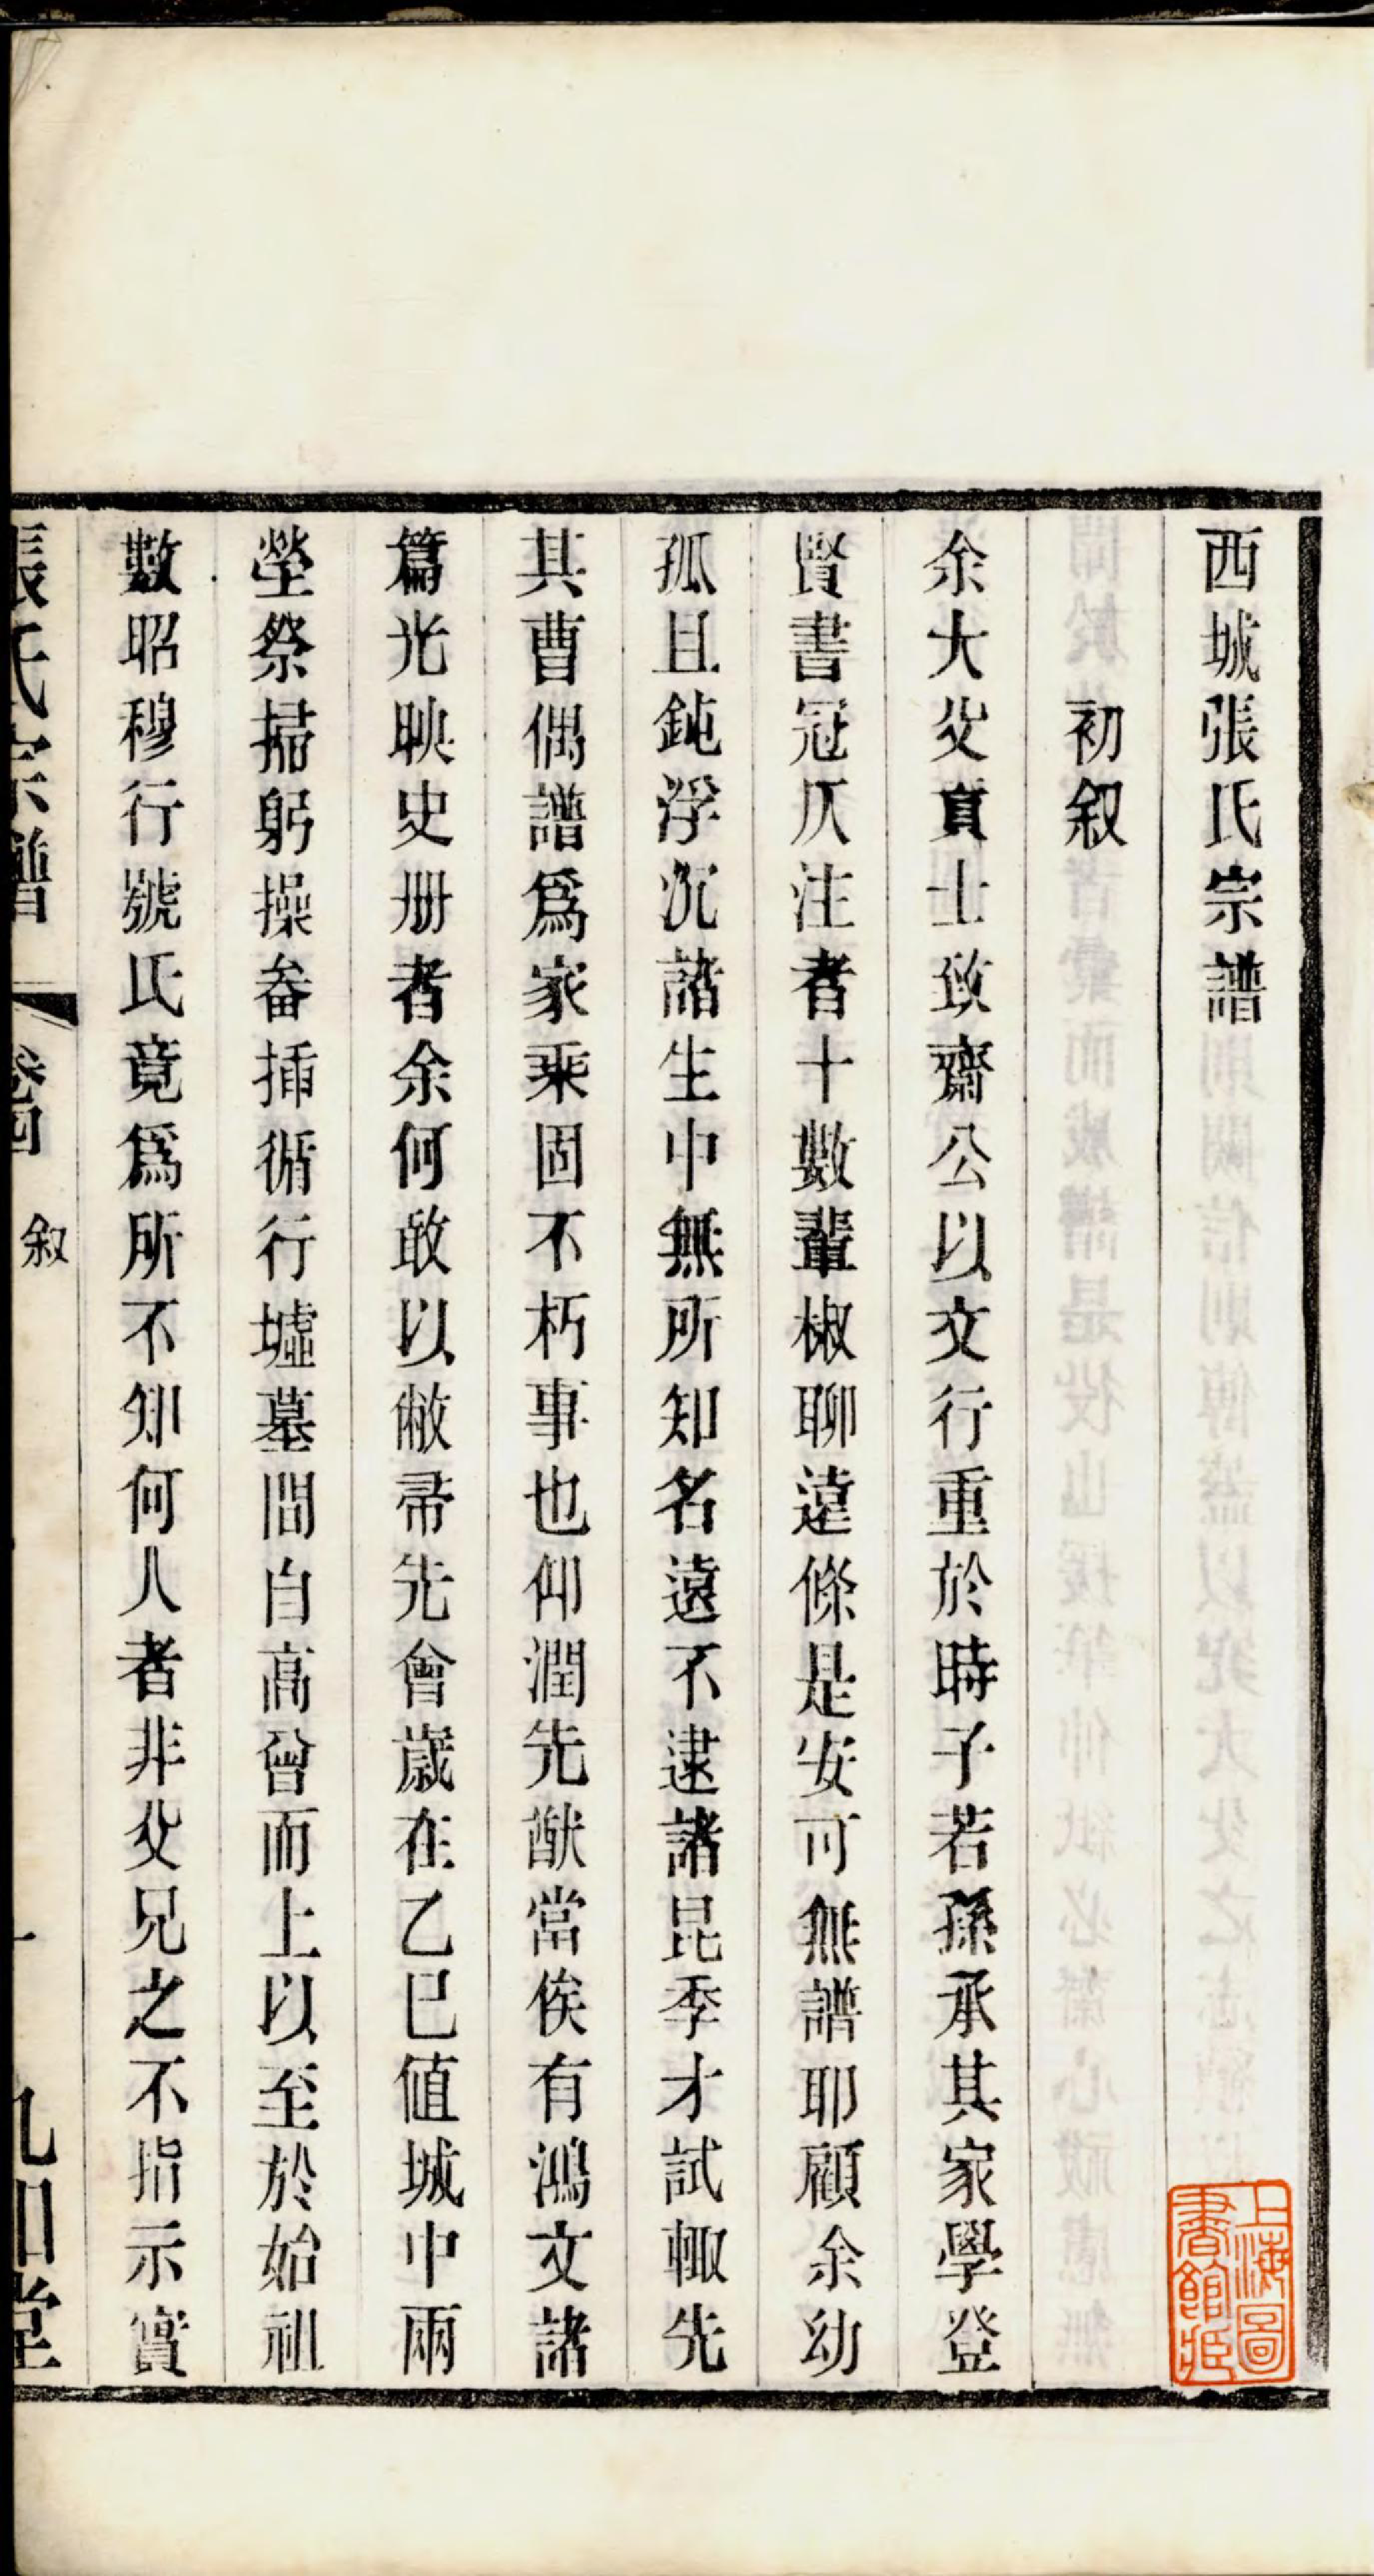 西城張氏宗譜
初叙
余大父貢士致齋公以文行重於時子若孫承其家學登
賢書冠仄注者十數輩椒聊遠條是安可無譜耶顧余幼
孤且鈍浮沉諸生中無所知名遠不逮諸昆季才試輙先
其曹偶譜爲家乘固不朽事也仰潤先猷當俟有鴻文諸
篇光映史册者余何敢以敝帚先會歲在乙巳值城中兩
塋祭掃躬操畚挿循行墟墓間自高曾而上以至於始祖
數昭穆行號氏竟爲所不知何人者非父兄之不指示實
張氏宗譜 卷四 叙 一 九如堂
上海圖書館藏